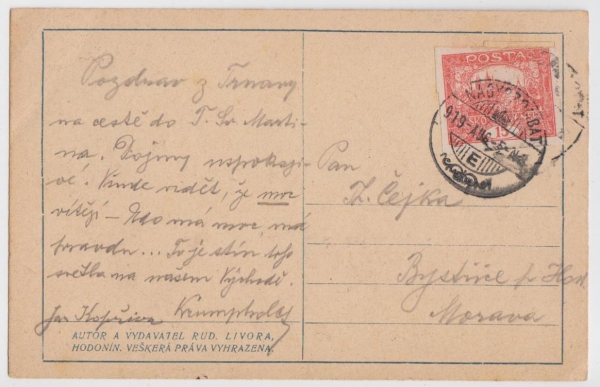 Pozdrav z Trnavy
na cestě do T. Sv. Marti-
na. Dojmy uspokoji-
vé. Všude vidět, že moc
vítězí - Kdo má moc, má
pravdu... To je stín toho
světla na našem Východě.
Jar. Kopřiva Krumpholc
AUTOR A VYDAVATEL RUD. LIVORA,
HODONÍN. VEŠKERÁ PRÁVA VYHRAZENA.
POŠTA
NAGYSZOMBAT
919 AUG
E
Pan
Čejka
Bystřice p. Host.
Morava